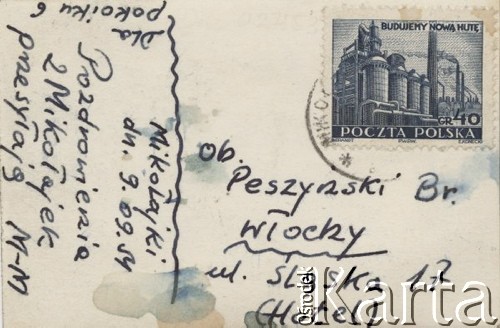 Dla
pokoiku 6
Pozdrowienia
z Mikołajek
przesyłają M-M
Mikołajki
dn. 9.09.51
BUDUJEMY NOWĄ HUTĘ
GR 40
POCZTA POLSKA
MIKOŁ
ob.
Peszyński Br.
Włochy
ul. Śląska 17
(Hotel)
Ośrodek
Karta